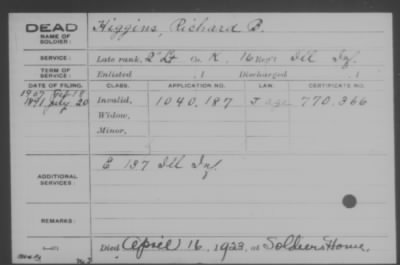 DEAD
NAME OF SOLDIER:
Higgins, Richard B.
SERVICE:
Late rank, 2" Lt Co. K, 16 Reg't Ill Inf.
TERM OF SERVICE:
Enlisted , 1 Discharged , 1
DATE OF FILING. CLASS. APPLICATION NO. LAW. CERTIFICATE NO.
1891 July 20 Invalid, 1040,187 J 770.366
Widow,
Minor,
ADDITIONAL SERVICES:
E 137 Ill Inf.
REMARKS:
Died April 16, 1923, at Soldiers Home.